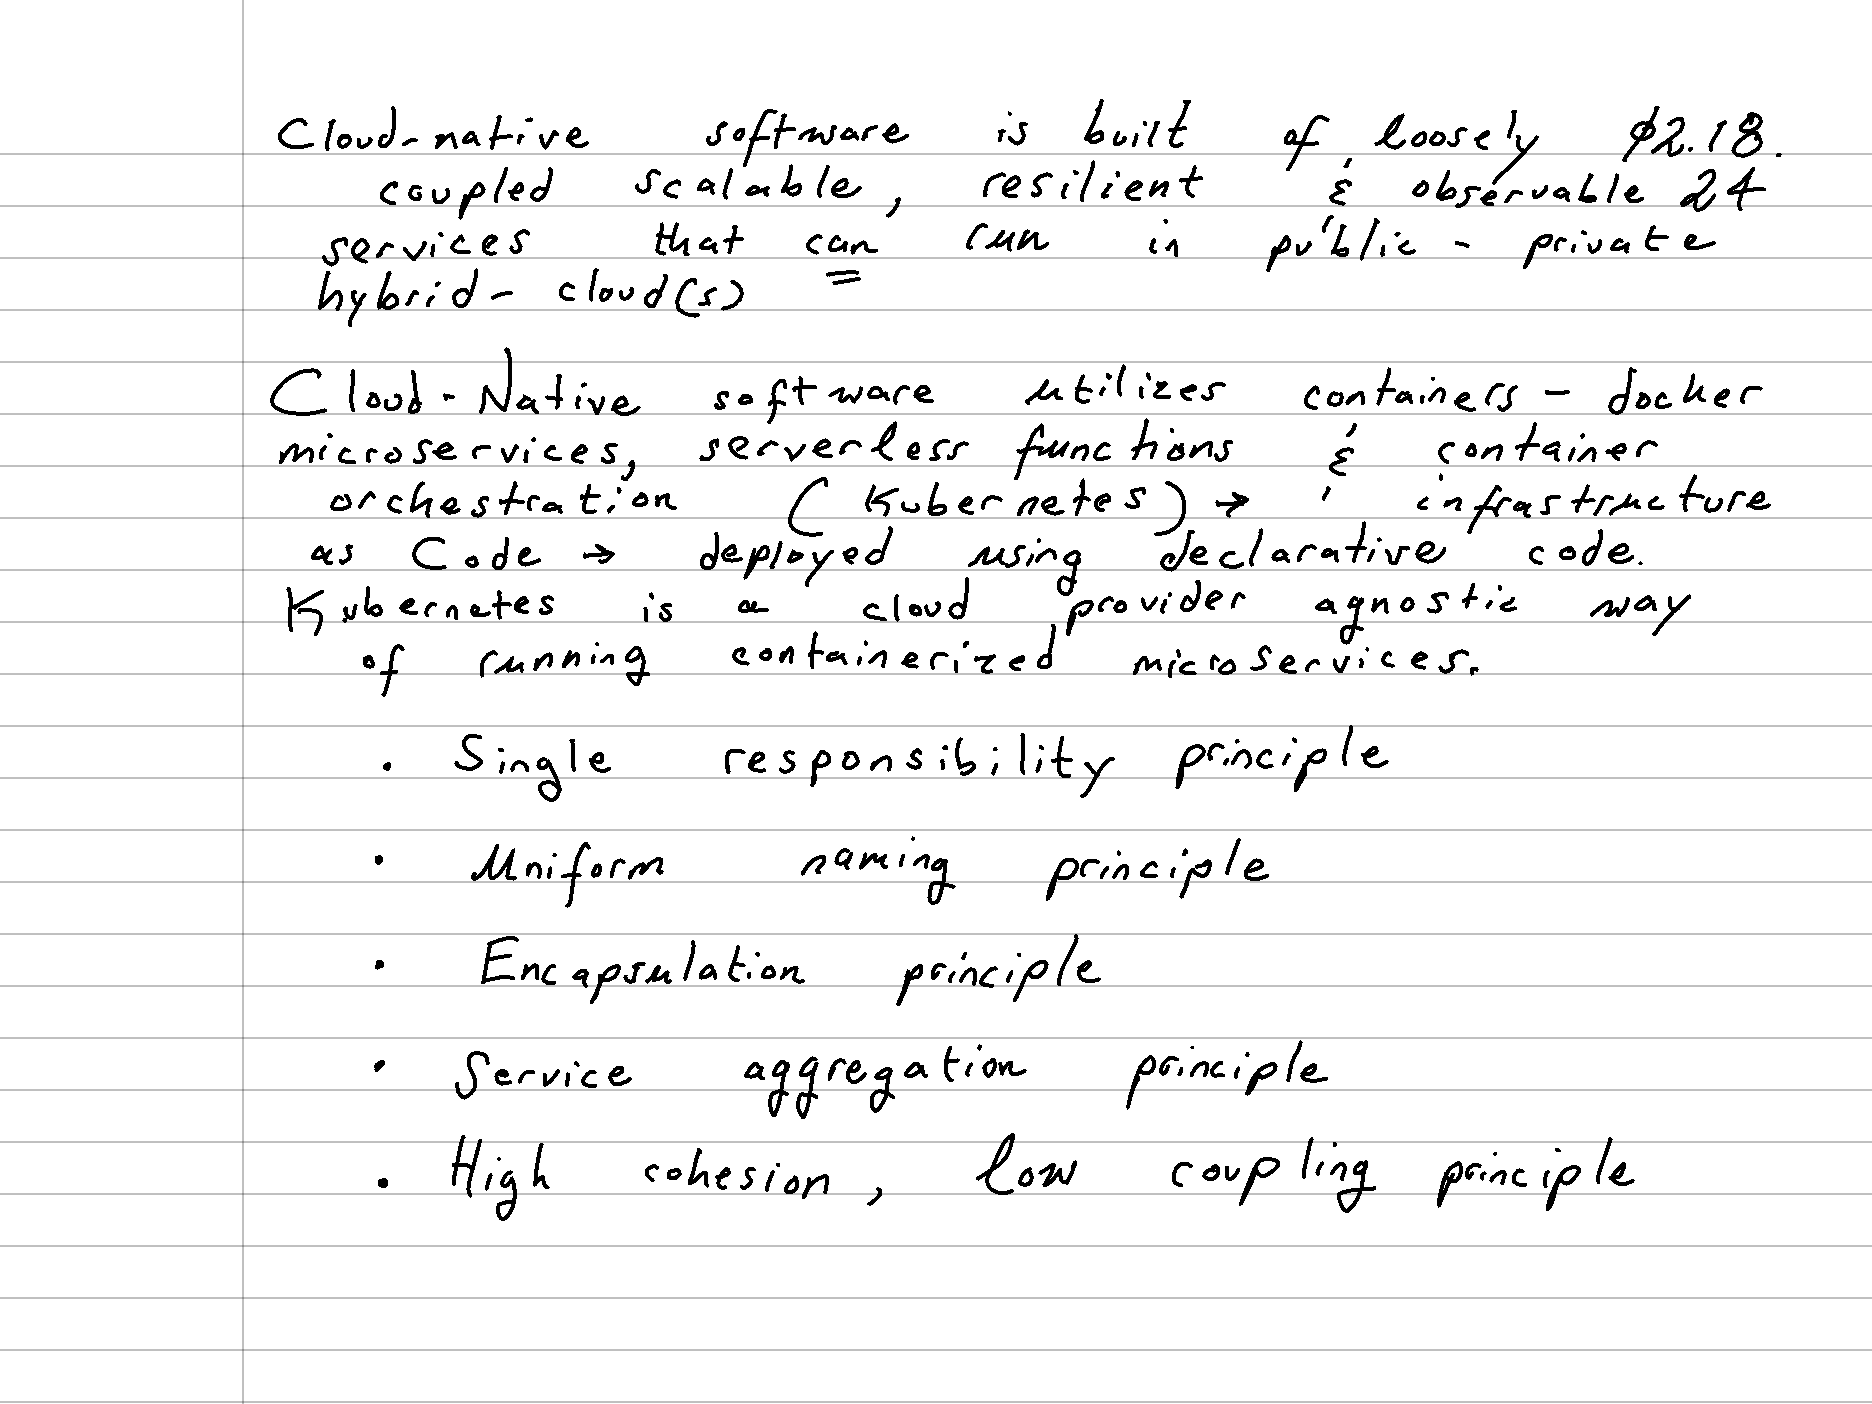 Cloud-native software is built of loosely 02.18.
coupled scalable, resilient & observable 24
services that can run in public - private
hybrid - cloud(s)
Cloud-Native software utilizes containers - docker
microservices, serverless functions & container
orchestration (Kubernetes) → infrastructure
as Code → deployed using declarative code.
Kubernetes is a cloud provider agnostic way
of running containerized microservices.
· Single responsibility principle
· Uniform naming principle
· Encapsulation principle
· Service aggregation principle
· High cohesion, low coupling principle